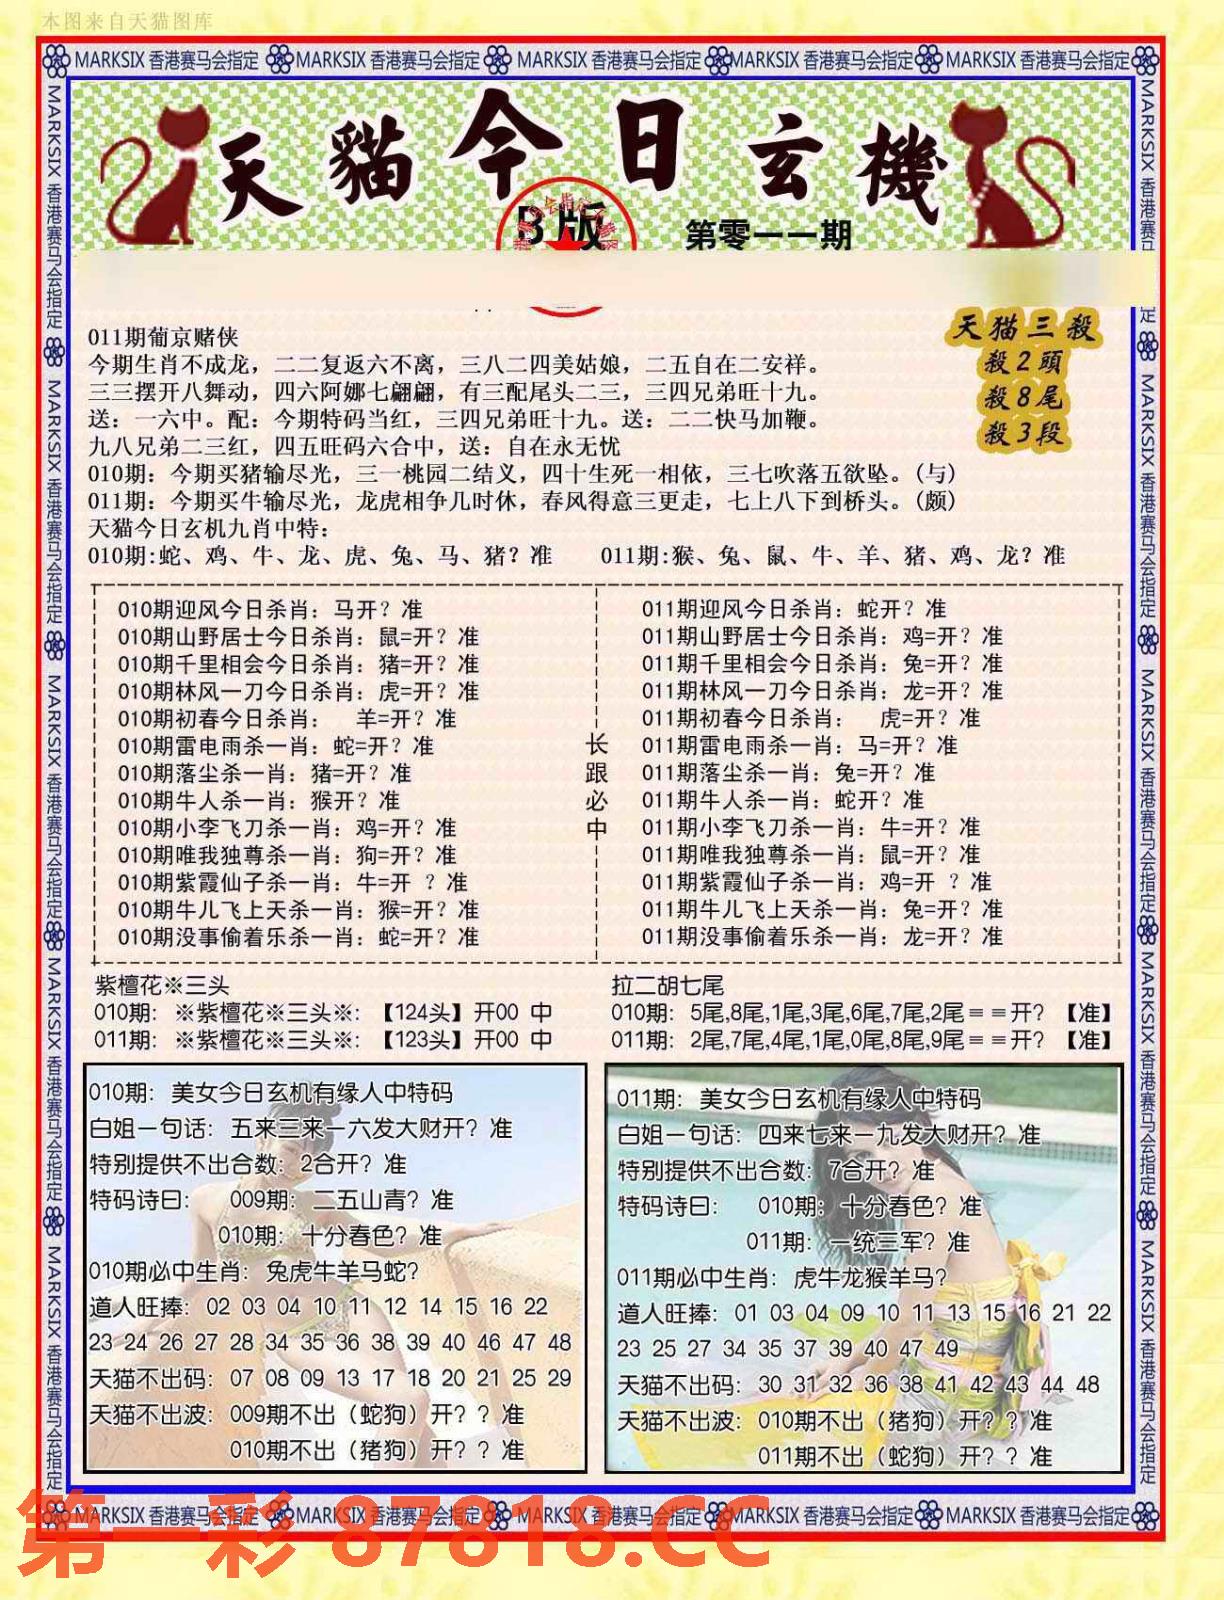 本图来自天猫图库
MARKSIX 香港赛马会指定 MARKSIX 香港赛马会指定 MARKSIX 香港赛马会指定 MARKSIX 香港赛马会指定 MARKSIX 香港赛马会指定
天貓今日玄機
B版
第零一一期
天猫三殺
殺2頭
殺8尾
殺3段
011期葡京赌侠
今期生肖不成龙，二二复返六不离，三八二四美姑娘，二五自在二安祥。
三三摆开八舞动，四六阿娜七翩翩，有三配尾头二三，三四兄弟旺十九。
送：一六中。配：今期特码当红，三四兄弟旺十九。送：二二快马加鞭。
九八兄弟二三红，四五旺码六合中，送：自在永无忧
010期：今期买猪输尽光，三一桃园二结义，四十生死一相依，三七吹落五欲坠。(与)
011期：今期买牛输尽光，龙虎相争几时休，春风得意三更走，七上八下到桥头。(颇)
天猫今日玄机九肖中特：
010期:蛇、鸡、牛、龙、虎、兔、马、猪？准 011期:猴、兔、鼠、牛、羊、猪、鸡、龙？准
010期迎风今日杀肖：马开？准
010期山野居士今日杀肖：鼠=开？准
010期千里相会今日杀肖：猪=开？准
010期林风一刀今日杀肖：虎=开？准
010期初春今日杀肖： 羊=开？准
010期雷电雨杀一肖：蛇=开？准
010期落尘杀一肖：猪=开？准
010期牛人杀一肖：猴开？准
010期小李飞刀杀一肖：鸡=开？准
010期唯我独尊杀一肖：狗=开？准
010期紫霞仙子杀一肖：牛=开 ？准
010期牛儿飞上天杀一肖：猴=开？准
010期没事偷着乐杀一肖：蛇=开？准
长跟必中
011期迎风今日杀肖：蛇开？准
011期山野居士今日杀肖：鸡=开？准
011期千里相会今日杀肖：兔=开？准
011期林风一刀今日杀肖：龙=开？准
011期初春今日杀肖： 虎=开？准
011期雷电雨杀一肖：马=开？准
011期落尘杀一肖：兔=开？准
011期牛人杀一肖：蛇开？准
011期小李飞刀杀一肖：牛=开？准
011期唯我独尊杀一肖：鼠=开？准
011期紫霞仙子杀一肖：鸡=开 ？准
011期牛儿飞上天杀一肖：兔=开？准
011期没事偷着乐杀一肖：龙=开？准
紫檀花※三头
010期：※紫檀花※三头※：【124头】开00 中
011期：※紫檀花※三头※：【123头】开00 中
拉二胡七尾
010期：5尾,8尾,1尾,3尾,6尾,7尾,2尾＝＝开？【准】
011期：2尾,7尾,4尾,1尾,0尾,8尾,9尾＝＝开？【准】
010期：美女今日玄机有缘人中特码
白姐一句话：五来三来一六发大财开？准
特别提供不出合数：2合开？准
特码诗曰： 009期：二五山青？准
010期：十分春色？准
010期必中生肖：兔虎牛羊马蛇？
道人旺捧：02 03 04 10 11 12 14 15 16 22
23 24 26 27 28 34 35 36 38 39 40 46 47 48
天猫不出码：07 08 09 13 17 18 20 21 25 29
天猫不出波：009期不出（蛇狗）开？？准
010期不出（猪狗）开？？准
011期：美女今日玄机有缘人中特码
白姐一句话：四来七来一九发大财开？准
特别提供不出合数：7合开？准
特码诗曰： 010期：十分春色？准
011期：一统三军？准
011期必中生肖：虎牛龙猴羊马？
道人旺捧：01 03 04 09 10 11 13 15 16 21 22
23 25 27 34 35 37 39 40 47 49
天猫不出码：30 31 32 36 38 41 42 43 44 48
天猫不出波：010期不出（猪狗）开？？准
011期不出（蛇狗）开？？准
MARKSIX 香港赛马会指定 MARKSIX 香港赛马会指定 MARKSIX 香港赛马会指定 MARKSIX 香港赛马会指定 MARKSIX 香港赛马会指定
第一彩 87818.CC
MARKSIX 香港赛马会指定 MARKSIX 香港赛马会指定 MARKSIX 香港赛马会指定 MARKSIX 香港赛马会指定 MARKSIX 香港赛马会指定
MARKSIX 香港赛马会指定 MARKSIX 香港赛马会指定 MARKSIX 香港赛马会指定 MARKSIX 香港赛马会指定 MARKSIX 香港赛马会指定